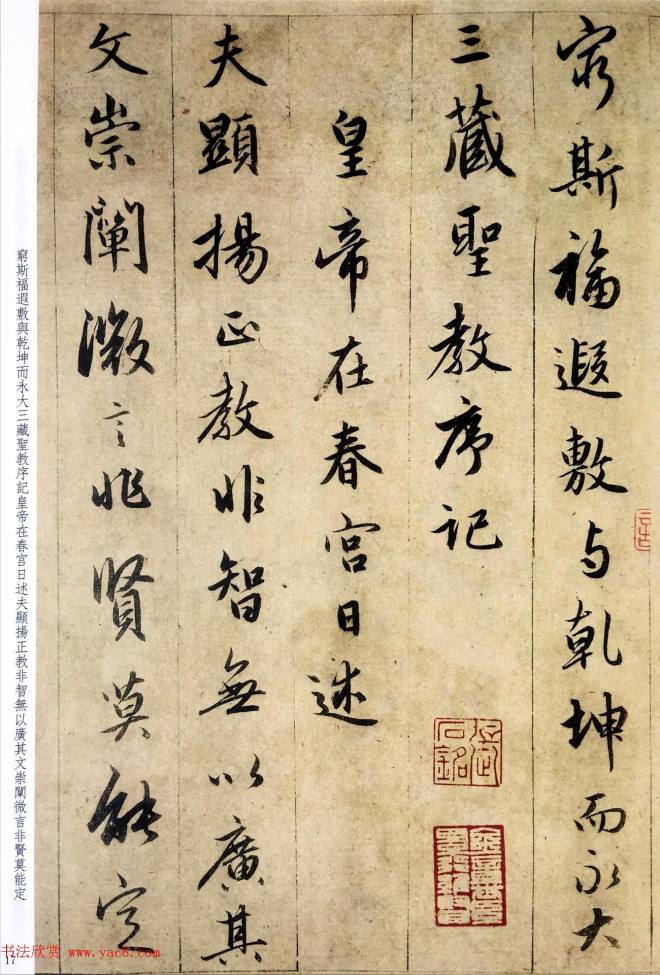 窮斯福遐敷与乾坤而永大
三藏聖教序記
皇帝在春宫日述
夫顯揚正教非智無以廣其
文崇闡微言非賢莫能定
窮斯福遐敷與乾坤而永大三藏聖教序記皇帝在春宮日述夫顯揚正教非智無以廣其文崇闡微言非賢莫能定
书法欣赏 www.yac8.com
17